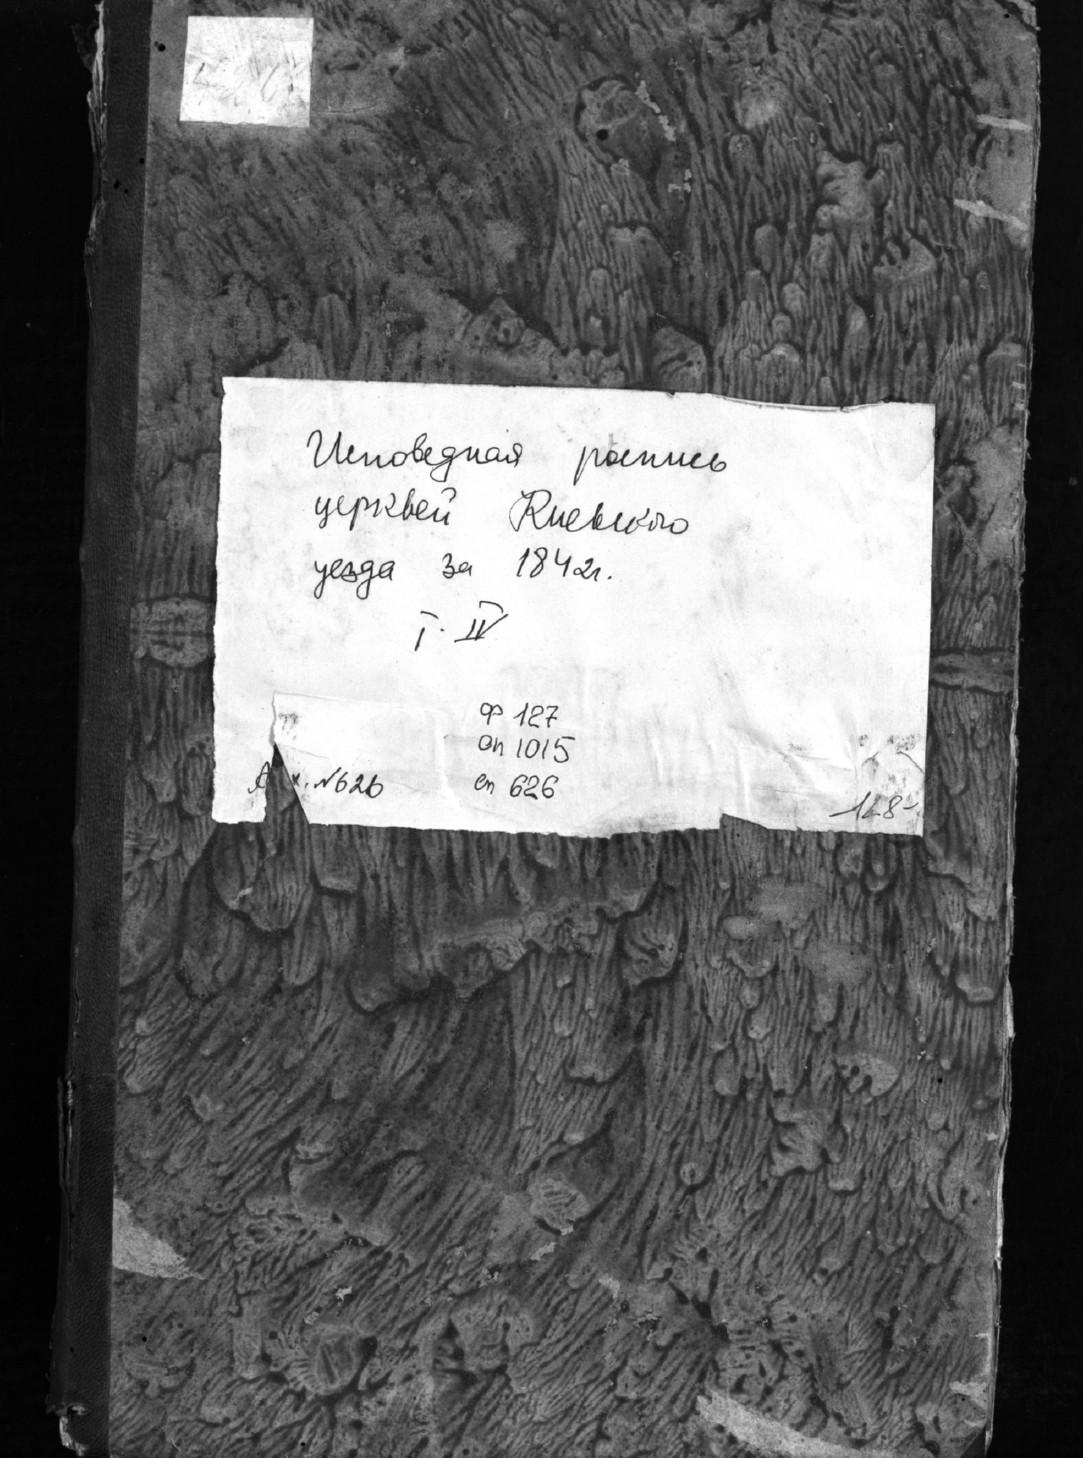 Исповедная роспись
церквей Киевского
уезда за 1842г.
т. IV
ф 127
оп 1015
еп 626
№626